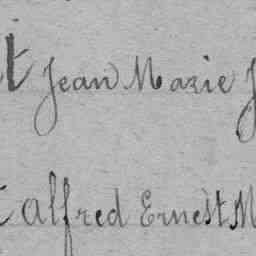 t Jean Marie J
t alfred Ernest M